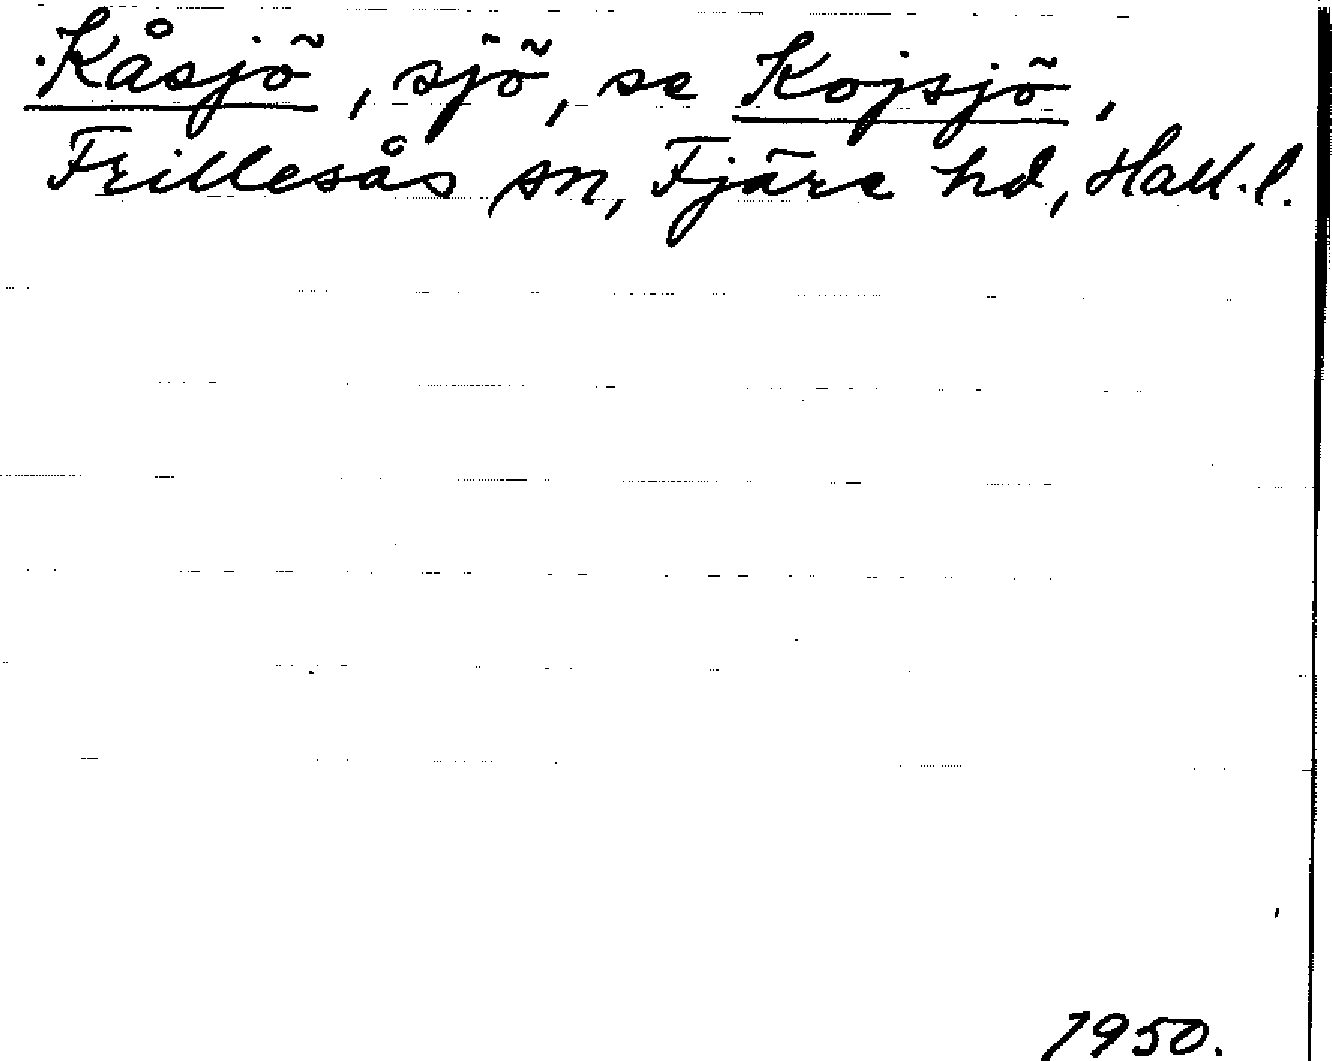 Kåsjö, sjö, se Kojsjö,
Frillesås sn, Fjäre hd, Hall. l.
1950.